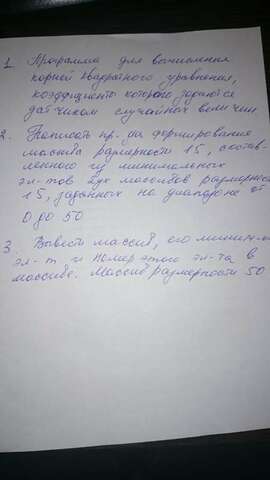 1. Программа для вычисления
корней квадратного уравнения,
коэффициенты которого задаются
датчиком случайных величин.
2. Написать пр-му формирования
массива размерности 15, состав-
ленного из минимальных
эл-тов двух массивов размернос
15, заданных на диапазоне от
0 до 50
3. Вывести массив, его миним-й
эл-т и номер этого эл-та в
массиве. Массив размерности 50